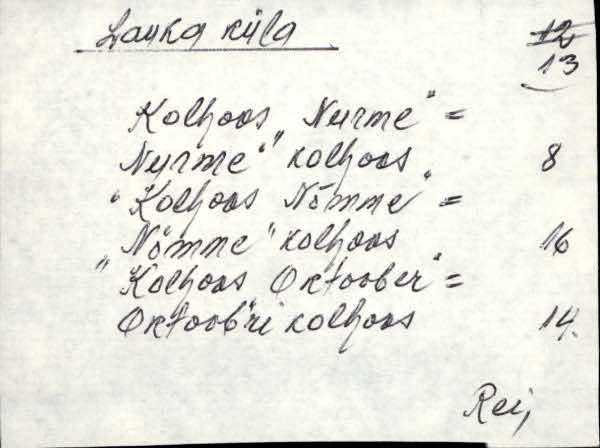 Lauka küla 12
13
Kolhoos „Nurme" =
Nurme" kolhoos 8
"Kolhoos Nõmme" =
„Nõmme" kolhoos 16
"Kolhoos Oktoober" =
Oktoobri kolhoos 14.
Rei,